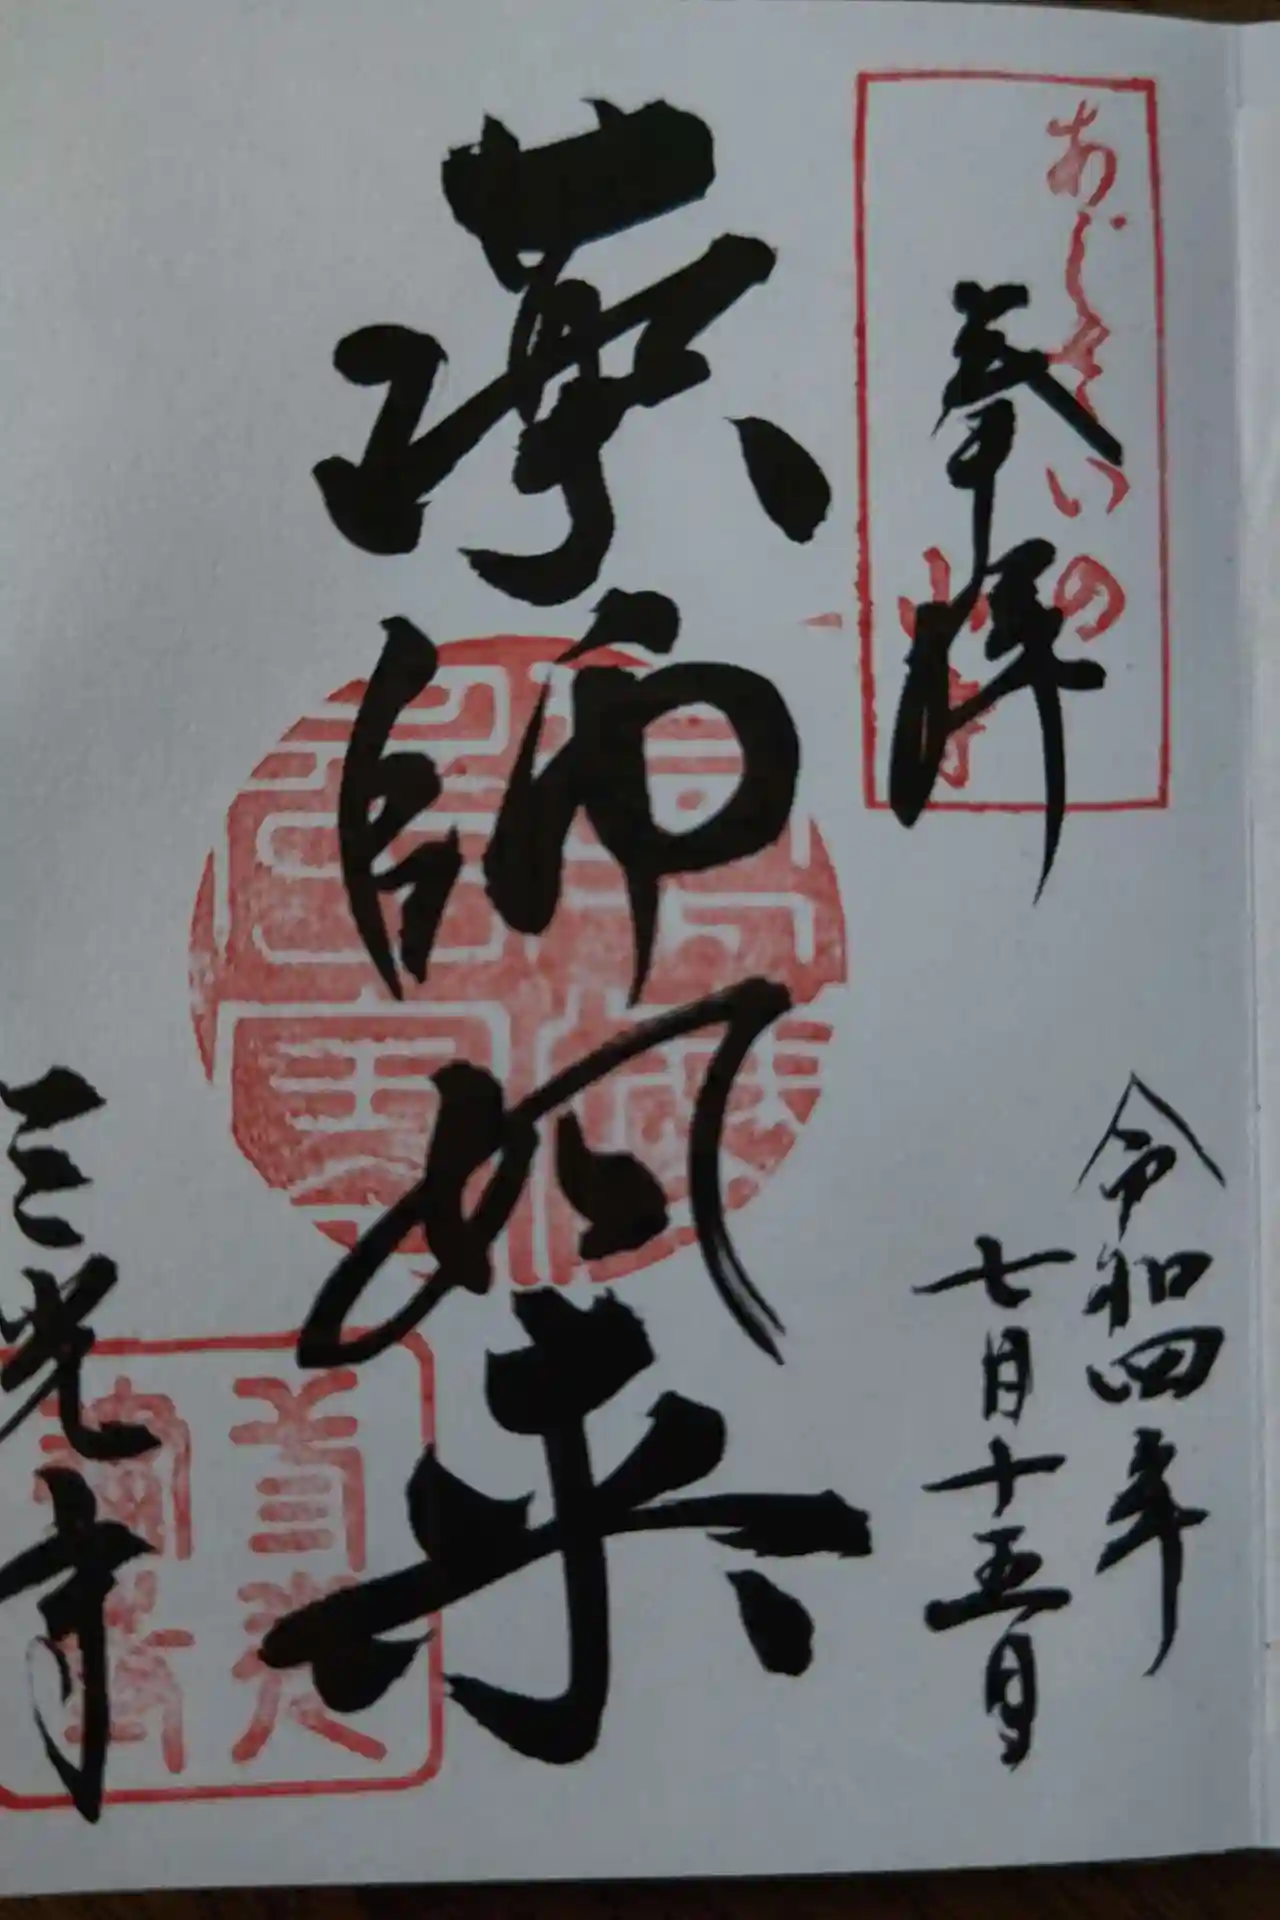 あじさいの
山寺
奉拝
令和四年
七月十五日
薬師如来
三光寺